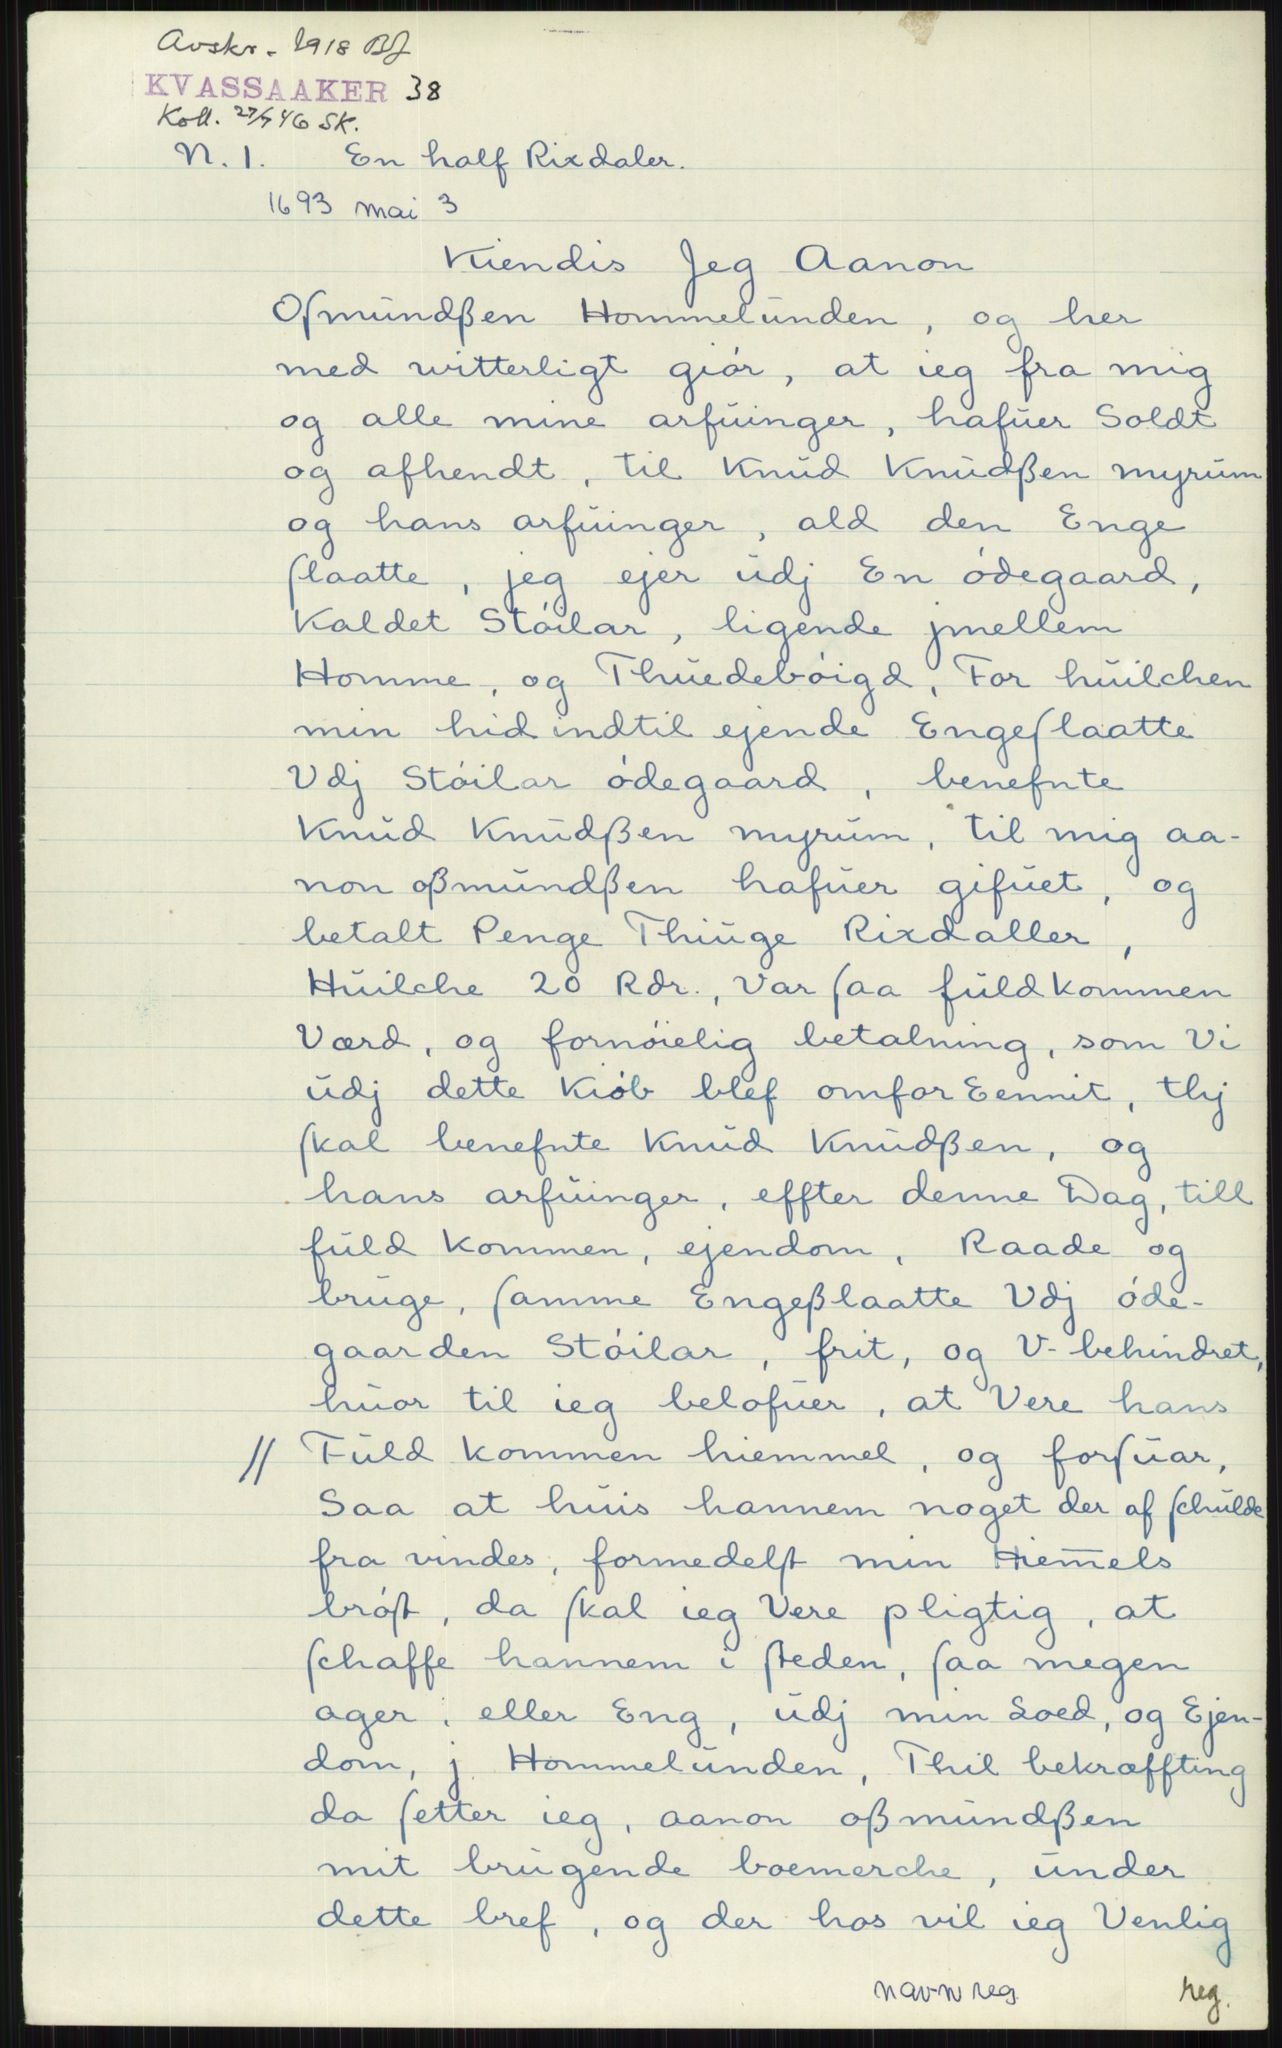 Avskr. 1918 BJ
KVASSAAKER 38
Koll. 27/7 46 SK.
N. 1. En half Rixdaler.
1693 mai 3
Kiendis Jeg Aanon
Oſmundßen Hommelunden, og her
med witterligt giór, at ieg fra mig
og alle mine arfuinger, hafuer Soldt
og afhendt, til Knud Knudßen myrum
og hans arfuinger, ald den Enge
ſlaatte, jeg ejer udj En ódegaard,
Kaldet Stóilar, ligende jmellem
Homme, og Thuedebóigd, For huilchen
min hid indtil ejende Engeſlaatte
Vdj Stóilar ódegaard, benefnte
Knud Knudßen myrum, til mig aa-
non oßmundßen hafuer gifuet, og
betalt Penge Thiuge Rixdaller,
Huilche 20 Rdr., Var ſaa fuldkommen
Værd, og fornóielig betalning, som Vi
udj dette Kiób blef omforEennit, thj
ſkal benefnte Knud Knudßen, og
hans arfuinger, effter denne Dag, till
fuld kommen, ejendom, Raade og
bruge, ſamme Engeßlaatte Vdj óde-
gaarden Stóilar, frit, og V-behindret,
huor til ieg belofuer, at Vere hans
// Fuld kommen hiemmel, og forſuar,
Saa at huis hannem noget der af ſchulde
fra vindes, formedelſt min Hiem̄els
bróſt, da ſkal ieg Vere pligtig, at
ſchaffe hannem i ſteden, ſaa megen
ager, eller Eng, udj min Loed, og Ejen-
dom, j Hommelunden, Thil bekræffting
da ſetter ieg, aanon oßmundßen
mit brugende boemerche, under
dette bref, og der hos vil ieg Venlig
navnreg reg.